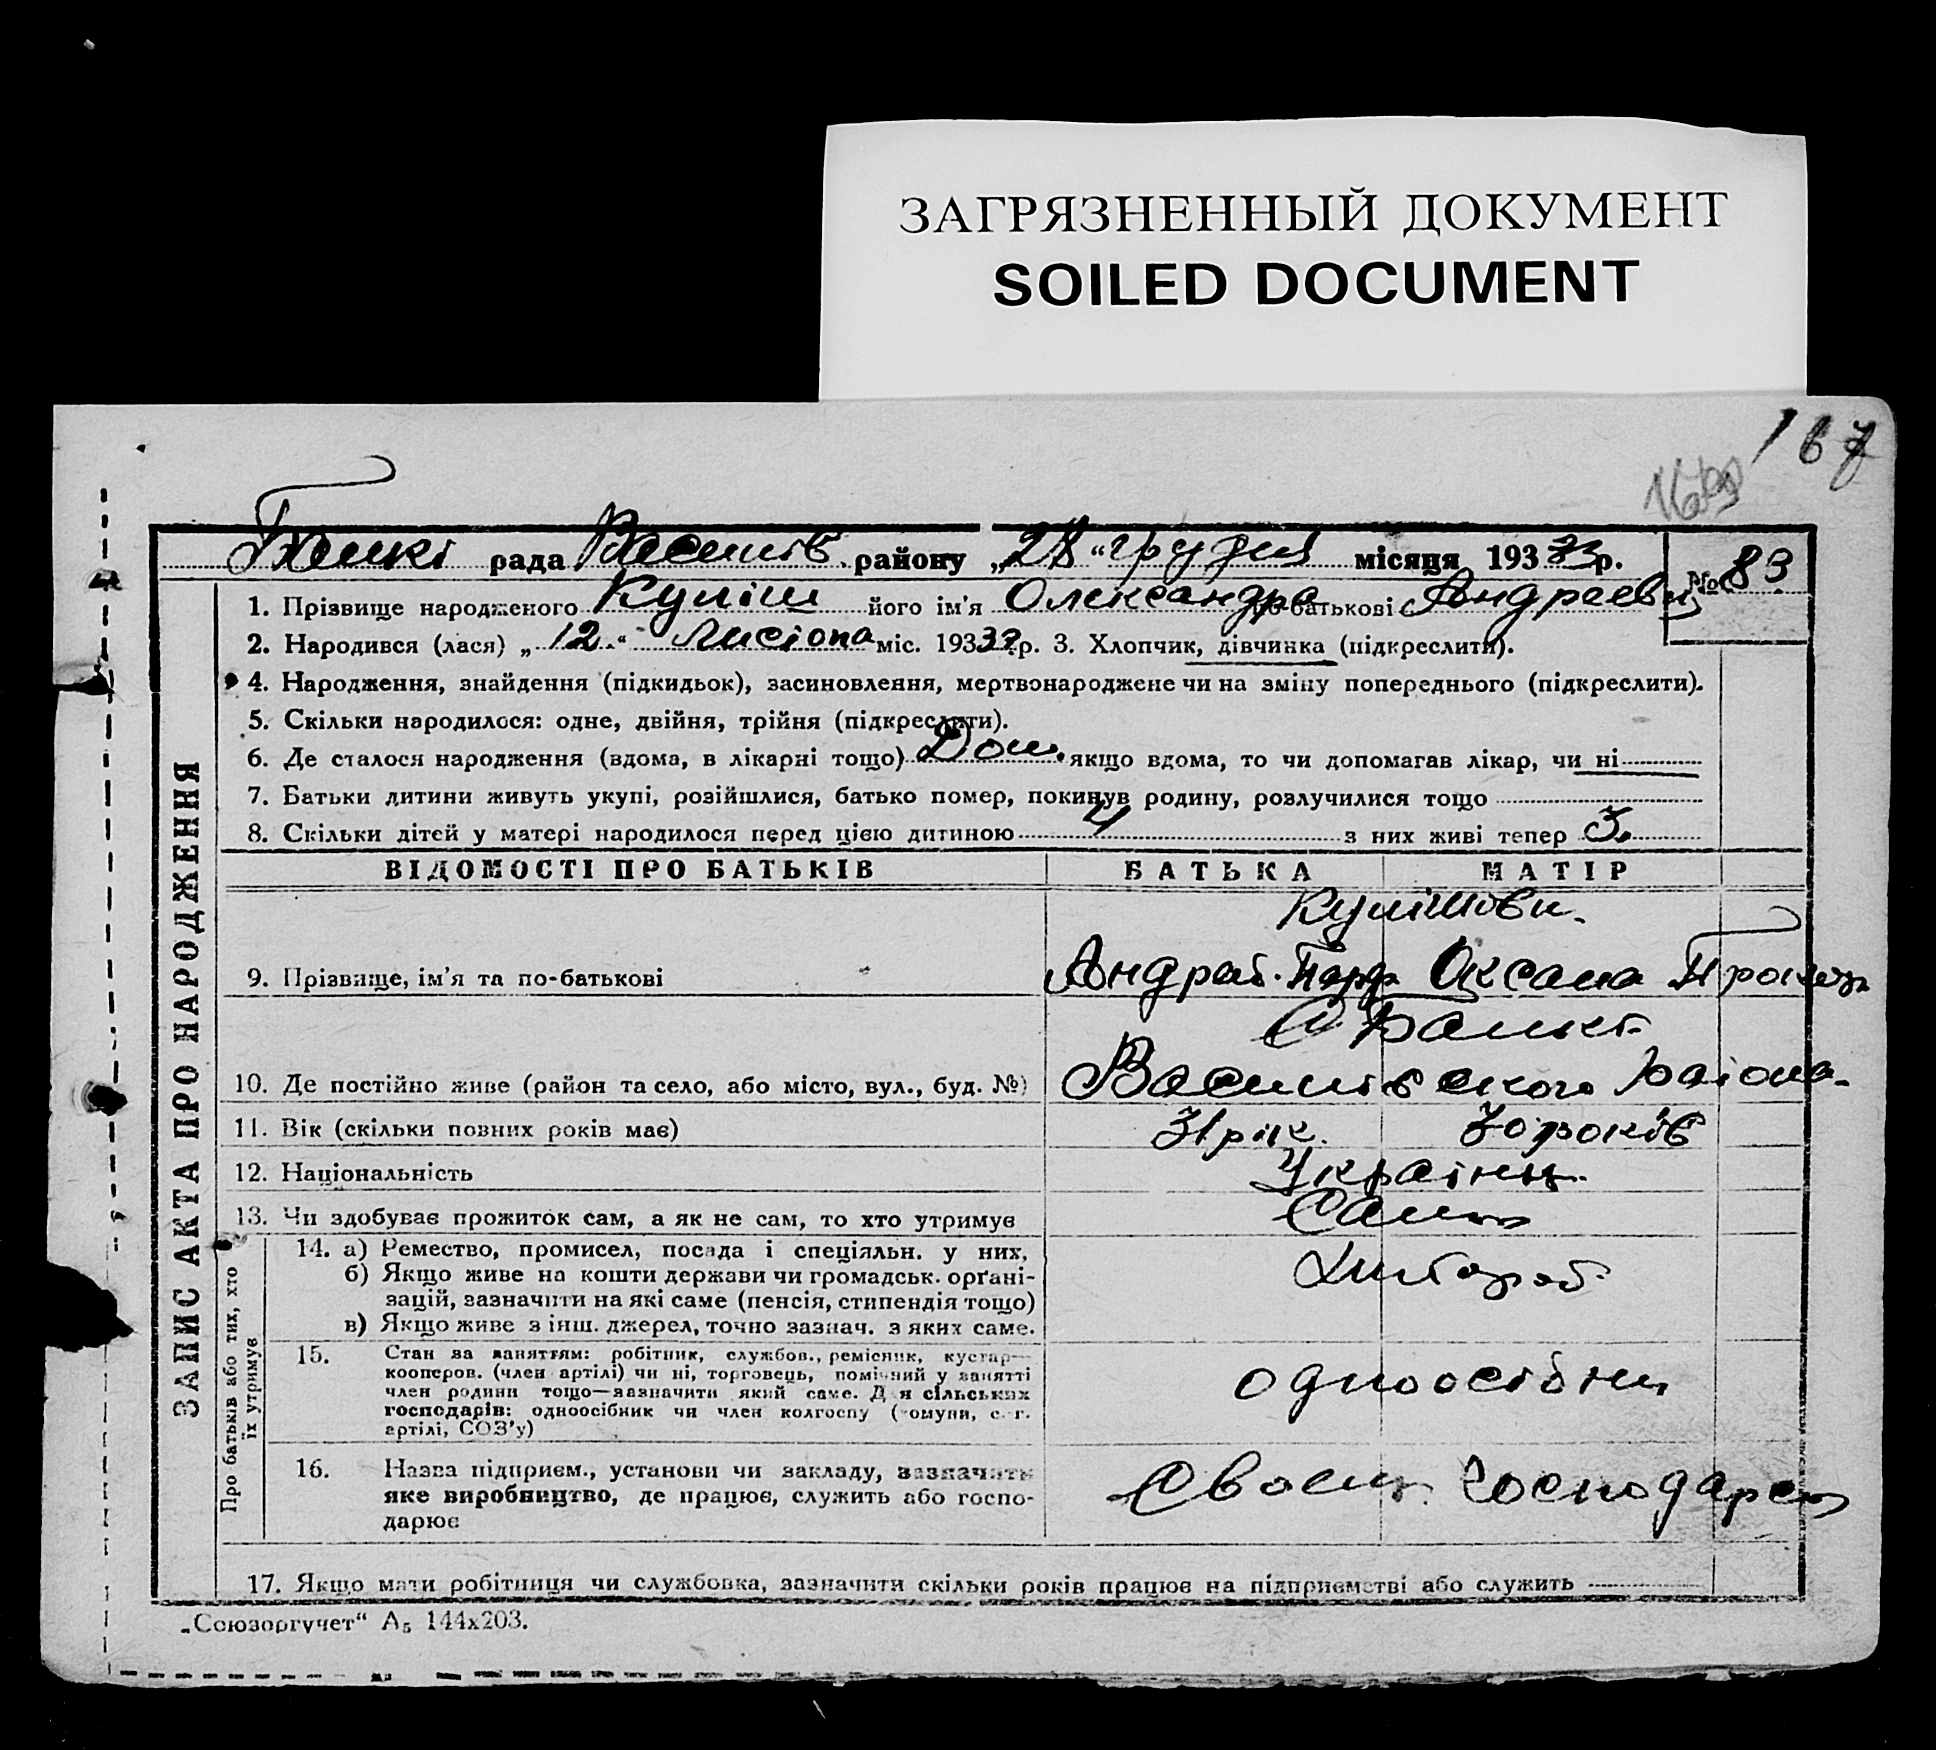 ЗАГРЯЗНЕННЫЙ ДОКУМЕНТ
SOILED DOCUMENT
167
рада район у „28“ грудня місяця 1933 р. № 83
1. Прізвище народженого Куліш його ім'я Олександра по-батькові Андреевн
2. Народився (лася) „12“ Листопа міс. 1933 р. 3. Хлопчик, дівчинка (підкреслити).
4. Народження, знайдення (підкидьок), засиновлення, мертвонароджене чи на зміну попереднього (підкреслити).
5. Скільки народилося: одне, двійня, трійня (підкреслити).
6. Де сталося народження (вдома, в лікарні тощо) Дом. якщо вдома, то чи допомагав лікар, чи ні
7. Батьки дитини живуть укупі, розійшлися, батько помер, покинув родину, розлучилися тощо
8. Скільки дітей у матері народилося перед цією дитиною 4 з них живі тепер 3.
ЗАПИС АКТА ПРО НАРОДЖЕННЯ
ВІДОМОСТІ ПРО БАТЬКІВ БАТЬКА МАТІР
Кулішови.
9. Прізвище, ім'я та по-батькові Андрей. Оксана
10. Де постійно живе (район та село, або місто, вул., буд. №)
11. Вік (скільки повних років має) 31 рік. 30 років
12. Національність Українц.
13. Чи здобуває прожиток сам, а як не сам, то хто утримує Сами
Про батьків або тих, хто
їх утримує
14. а) Ремество, промисел, посада і спеціяльн. у них,
б) Якщо живе на кошти держави чи громадськ. орґані-
зацій, зазначити на які саме (пенсія, стипендія тощо)
в) Якщо живе з інш. джерел, точно зазнач. з яких саме.
Хлібороб.
15. Стан за заняттям: робітник, службов., ремісник, кустар—
кооперов. (член артілі) чи ні, торговець, помічний у занятті
член родини тощо—зазначити який саме. Для сільських
господарів: одноосібник чи член колгоспу (комуни, с.-г.
артілі, СОЗ'у)
одноосібни
16. Назва підприєм., установи чи закладу, зазначити
яке виробництво, де працює, служить або госпо-
дарює
17. Якщо мати робітниця чи службовка, зазначити скільки років працює на підприємстві або служить
„Союзоргучет“ А₅ 144х203.